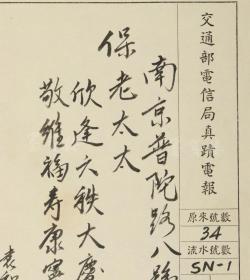 交通部電信局真蹟電報
原來號數
34
流水號數
SN-1
南京普陀路八號
保老太太
欣逢六秩大慶
敬維福壽康寧
袁